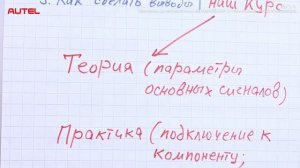 AUTEL
3. Как сделать выводы | наш курс
Теория (параметры
основных сигналов)
Практика (подключение к
компоненту;